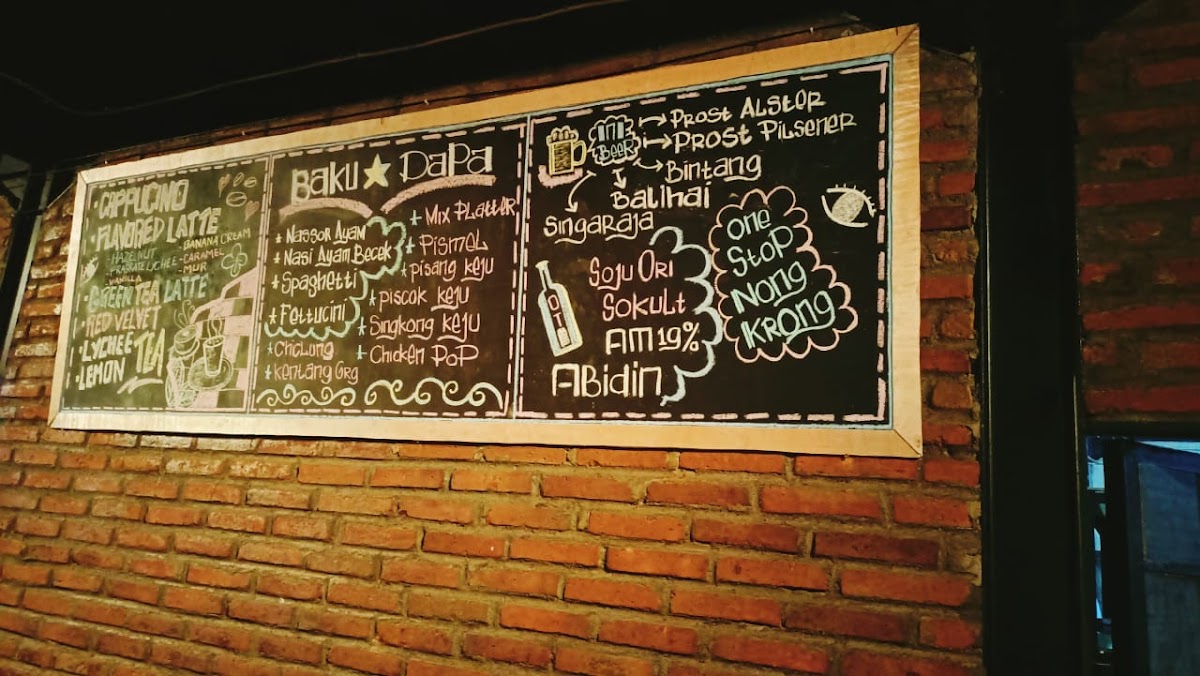 CAPPUCINO
FLAVORED LATTE
- HAZELNUT
- BANANA CREAM
- CARAMEL
- VANILLA
GREEN TEA LATTE
RED VELVET
LYCHEE TEA
LEMON
BAKU ★ PAPA
Nassor Ayam
Nasi Ayam Becek
Spaghetti
Fettucini
Kentang Grg
Mix Platter
Pismel
pisang keju
piscok keju
Singkong keju
Chicken PoP
BEER
Prost Alster
Prost Pilsener
Bintang
Balihai
Singaraja
Soju Ori
Sokult
AM 19%
ABidin
One
Stop
Nong
Krong